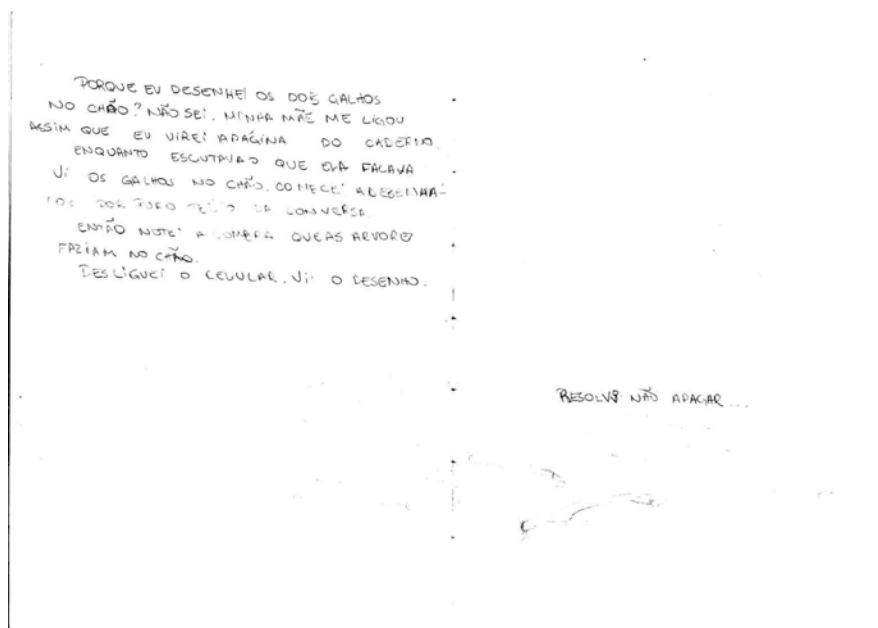 PORQUE EU DESENHEI OS DOIS GALHOS
NO CHÃO? NÃO SEI. MINHA MÃE ME LIGOU
ASSIM QUE EU VIREI A PÁGINA DO CADERNO.
ENQUANTO ESCUTAVA O QUE ELA FALAVA
VI OS GALHOS NO CHÃO. COMECEI A DESENHÁ-
LOS POR PURO TÉDIO DA CONVERSA.
ENTÃO NOTEI A SOMBRA QUE AS ARVORES
FAZIAM NO CHÃO.
DESLIGUEI O CELULAR. VI O DESENHO.
RESOLVI NÃO APAGAR...